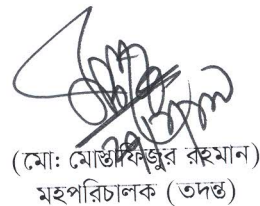 (মো: মোস্তাফিজুর রহমান)
মহপরিচালক (তদন্ত)